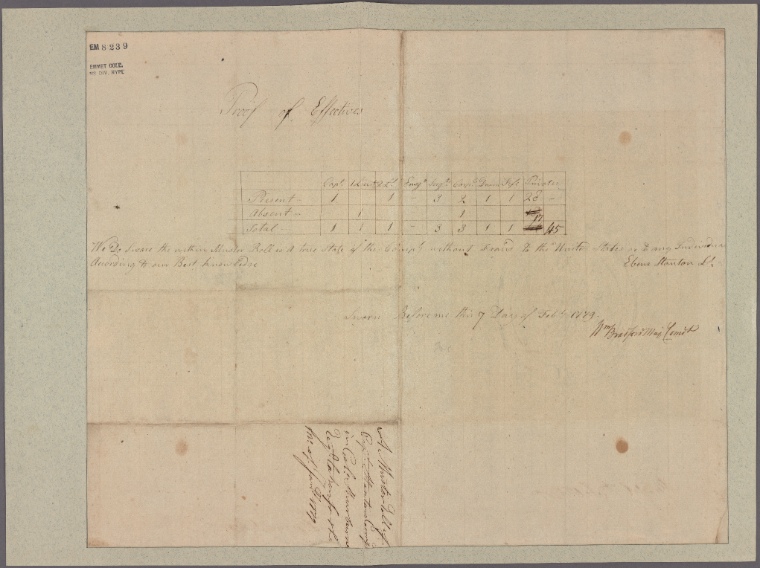 EM 8239
EMMET COLL.
Proof of Effectives
Capt 1 Lieut 2 Lt Ensgn Sergt Corpl Drum Fife Privates
Present 1 1 - 3 2 1 1 28
Absent 1 1 17
Total 1 1 1 - 3 3 1 1 45
We Do Swear the within Muster Roll is A true State of the Compy without Fraud to the United States or to any Individual
According to our Best Knowledge
Ebenr Stanton Lt
Sworn Before me this 7 Day of Feby 1779
Wm Bradford Maj Comdt
A Muster Roll of
Capt Stanton Compy
in Colo